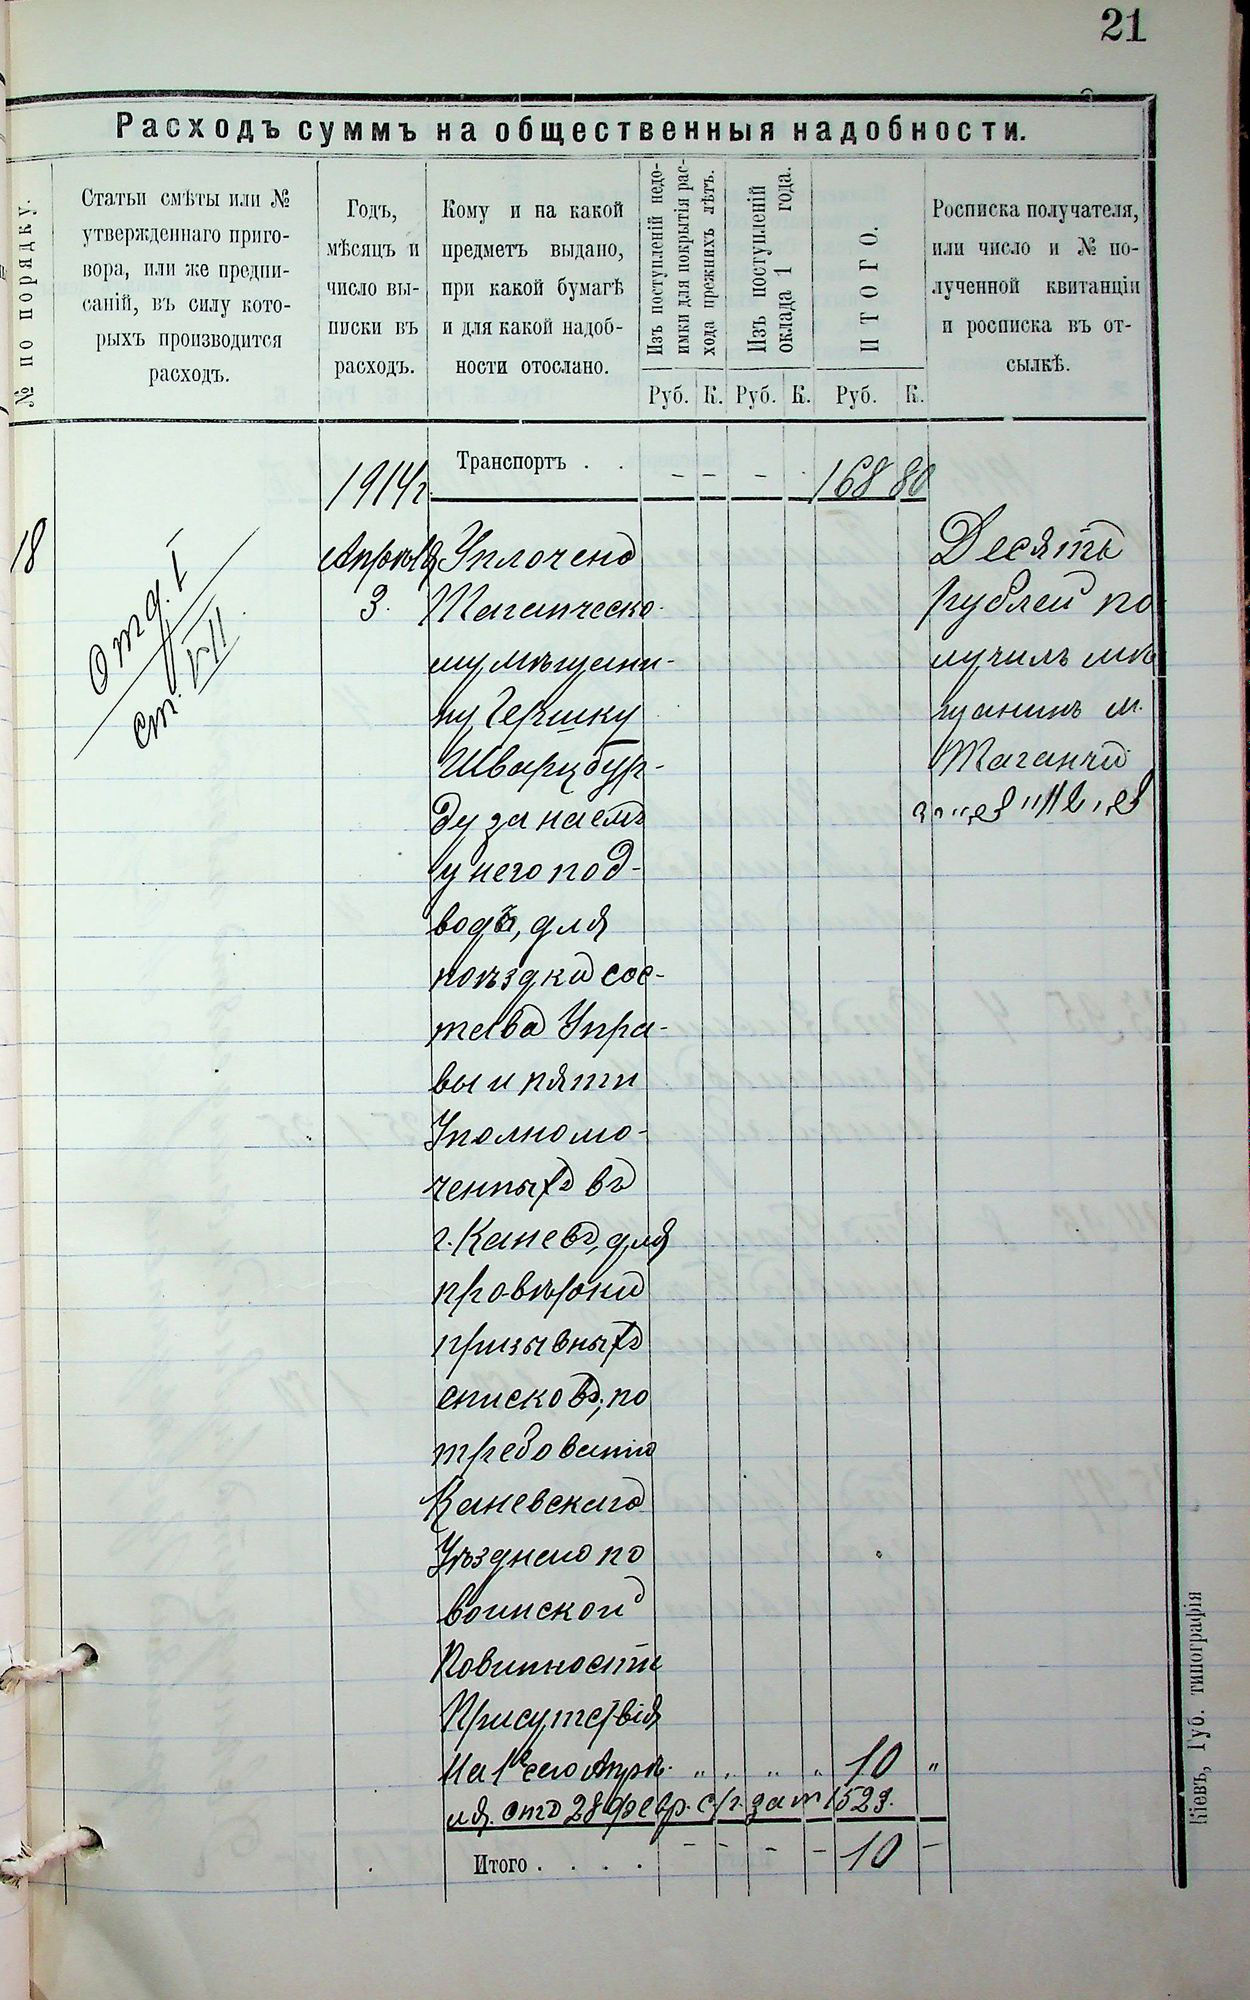 21
Расходъ суммъ на общественныя надобности.
№ по порядку.
Статьи смѣты или №
утвержденнаго приго-
вора, или же предпи-
саній, въ силу кото-
рыхъ производится
расходъ.
Годъ,
мѣсяцъ и
число вы-
писки въ
расходъ.
Кому и на какой
предметъ выдано,
при какой бумагѣ
и для какой надоб-
ности отослано.
Изъ поступленій недо-
имки для покрытія рас-
хода прежнихъ лѣтъ.
Изъ поступленій
оклада 1 года.
ИТОГО.
Росписка получателя,
или число и № по-
лученной квитанціи
и росписка въ от-
сылкѣ.
Руб. К. Руб. К. Руб. К.
1914г.
Транспортъ . . – – – . 168 80
18
Отд. I
ст. VII
Апрѣля
3.
Уплочено
Таганческо-
му мѣщани-
ну Гершку
Шварцбур-
ду за наемъ
у него под-
водъ, для
поѣздки сос-
тава Упра-
вы и пяти
Уполномо-
ченныхъ въ
г. Каневъ, для
провѣрки
призывныхъ
списковъ, по
требованію
Каневскаго
Уѣзднаго по
воинской
Повинности
Присутствія
На 1е сего Апрѣ- „ „ „ „ 10 „
ля. отъ 28 февр. с/г. за № 1529.
Десять
рублей по
лучилъ мѣ
щанинъ м.
Таганчи
Итого . . . . – – – – 10 –
Кіевъ, Губ. типографія